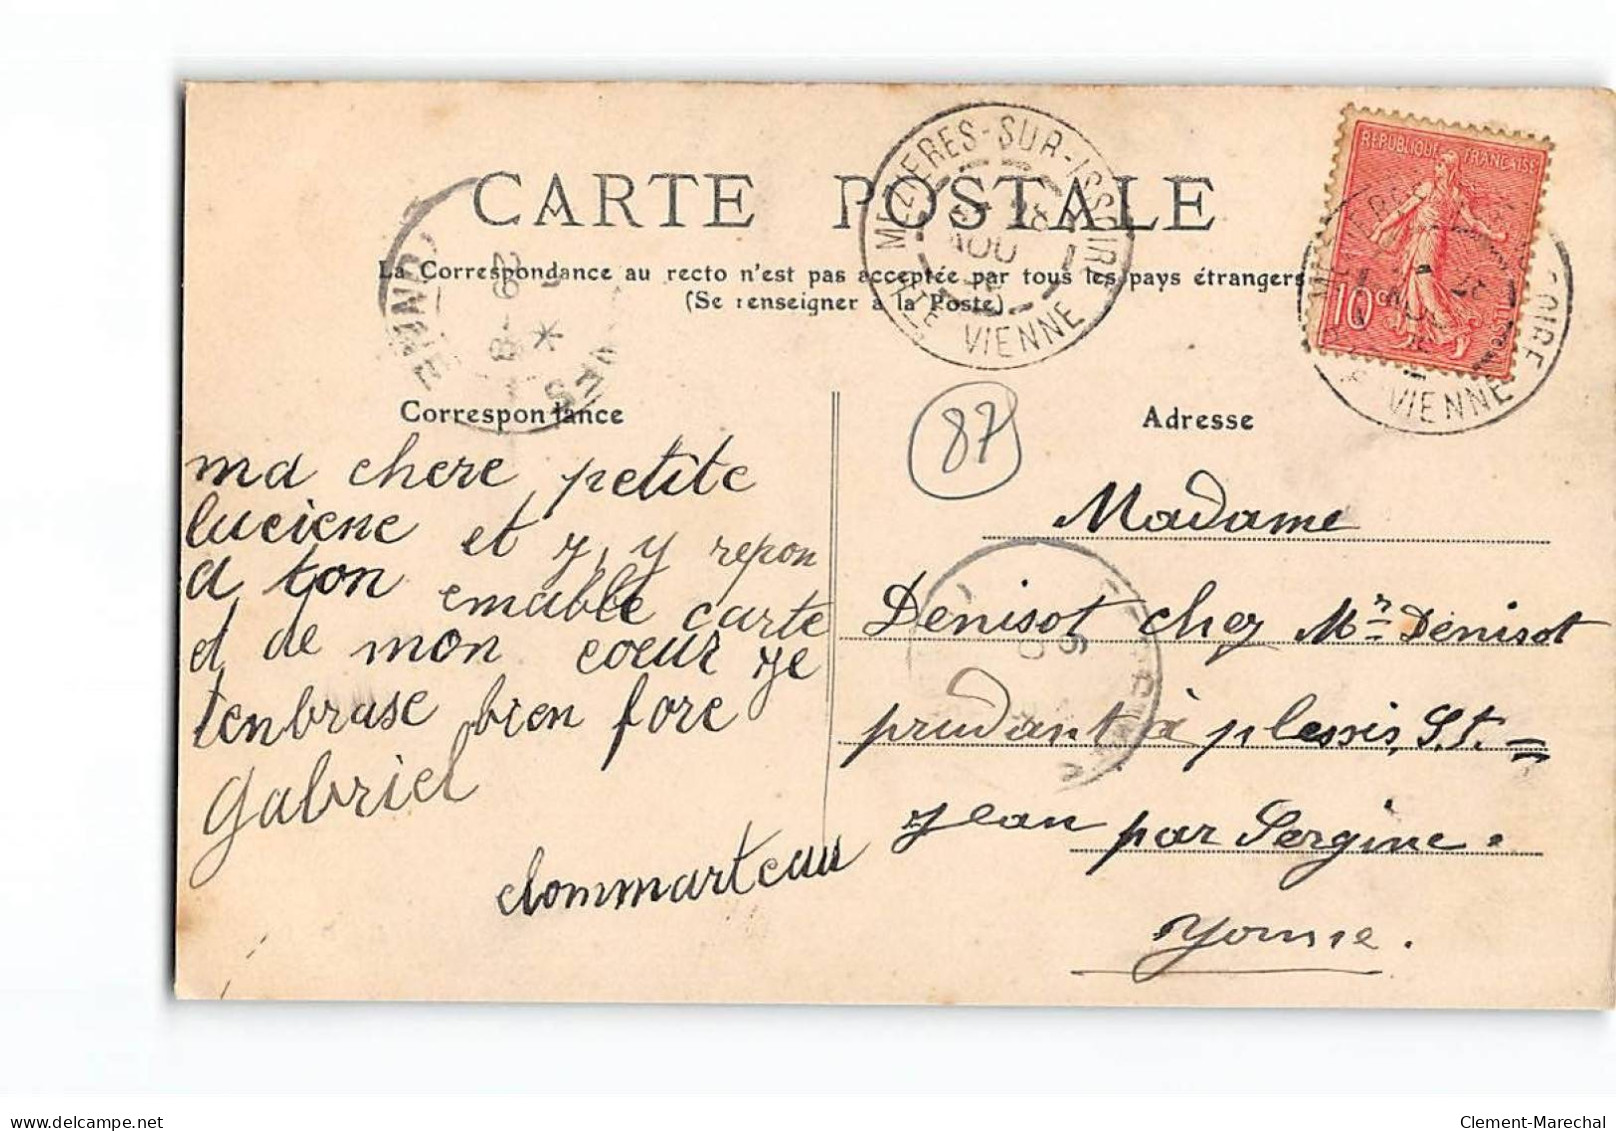 CARTE POSTALE
La Correspondance au recto n'est pas acceptée par tous les pays étrangers
(Se renseigner à la Poste)
MEZIERES-SUR-ISSOIRE
28
AOU
HTE VIENNE
REPUBLIQUE FRANÇAISE
10c
VIENNE
29 - 8
Correspondance
Adresse
87
ma chere petite
luciene et y, y repon
d ton emable carte
et de mon coeur je
tenbrase bien fore
gabriel
dommarteau
Madame
Denisot chez Mr Denisot
prudant à plessis St. =
Jean par Sergine.
Yonne.
delcampe.net
Clement-Marechal